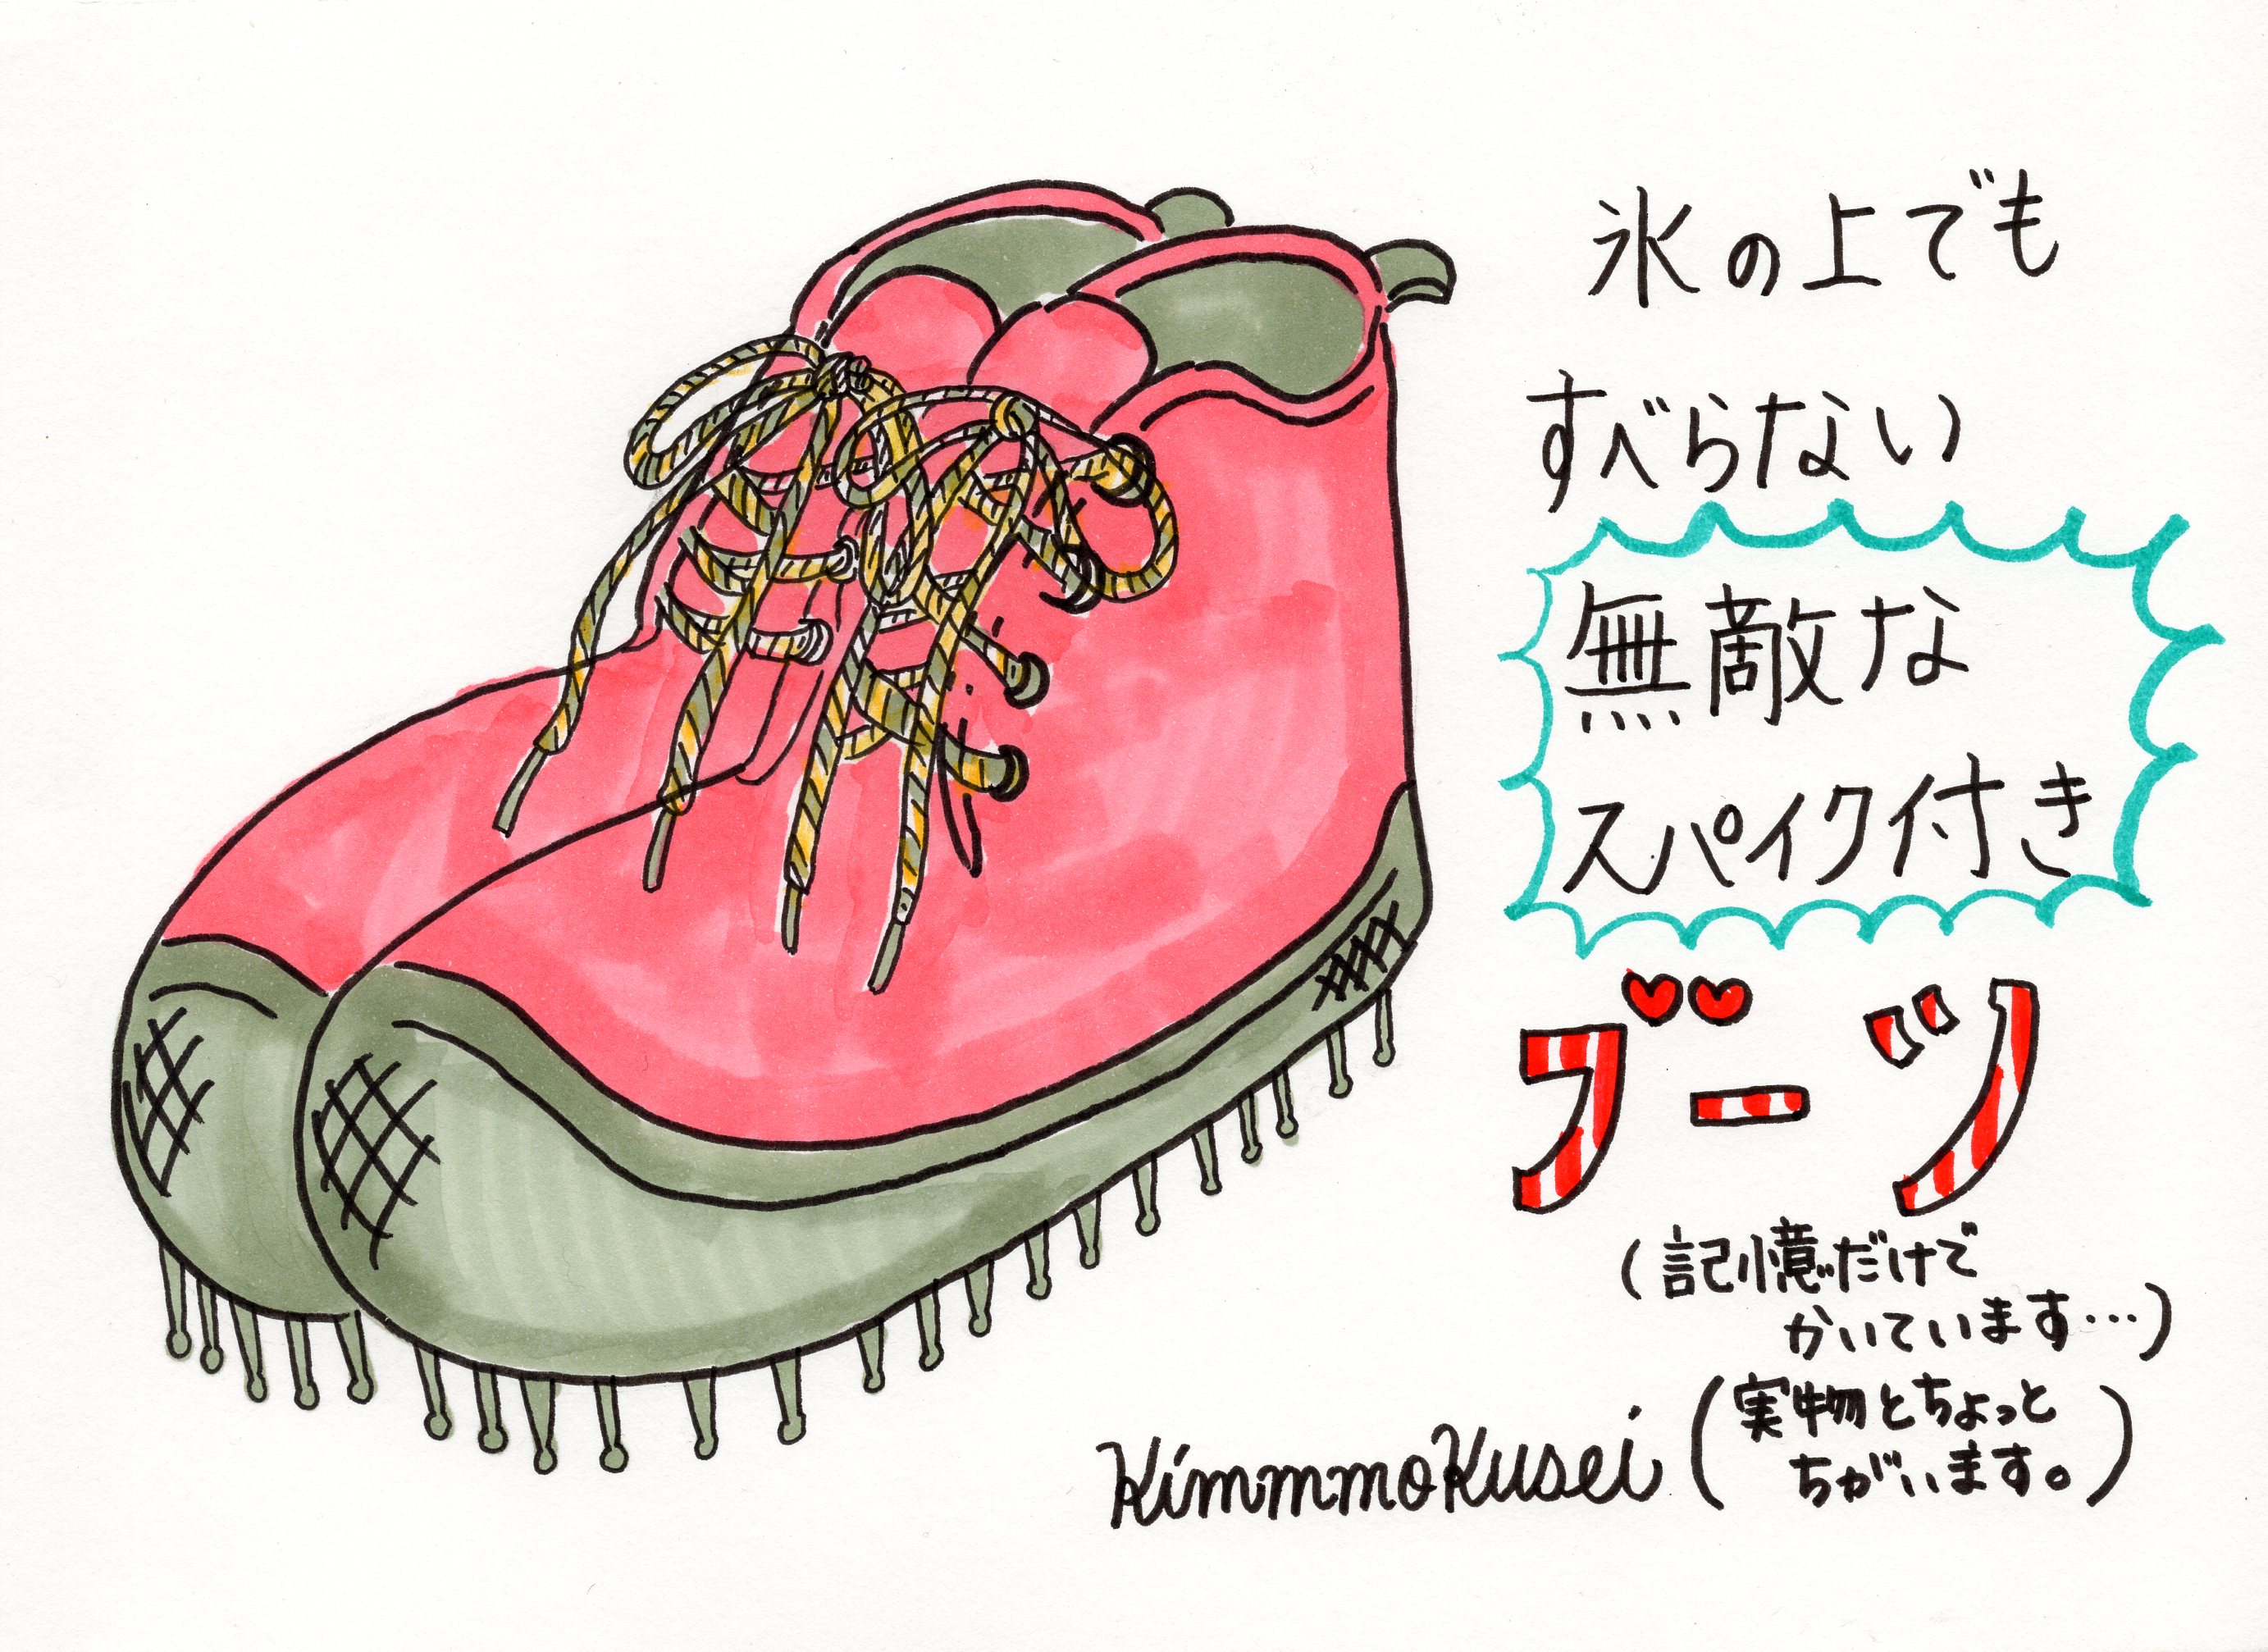 氷の上でも
すべらない
無敵な
スパイク付き
ブーツ
(記憶だけで
かいています…)
(実物とちょっと
ちがいます。)
Kimmmokusei